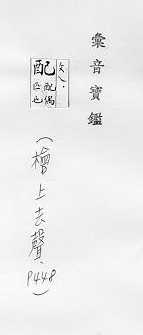 彙音寶鑑
文入．
配 配偶
匹也
(檜上去聲．P448)